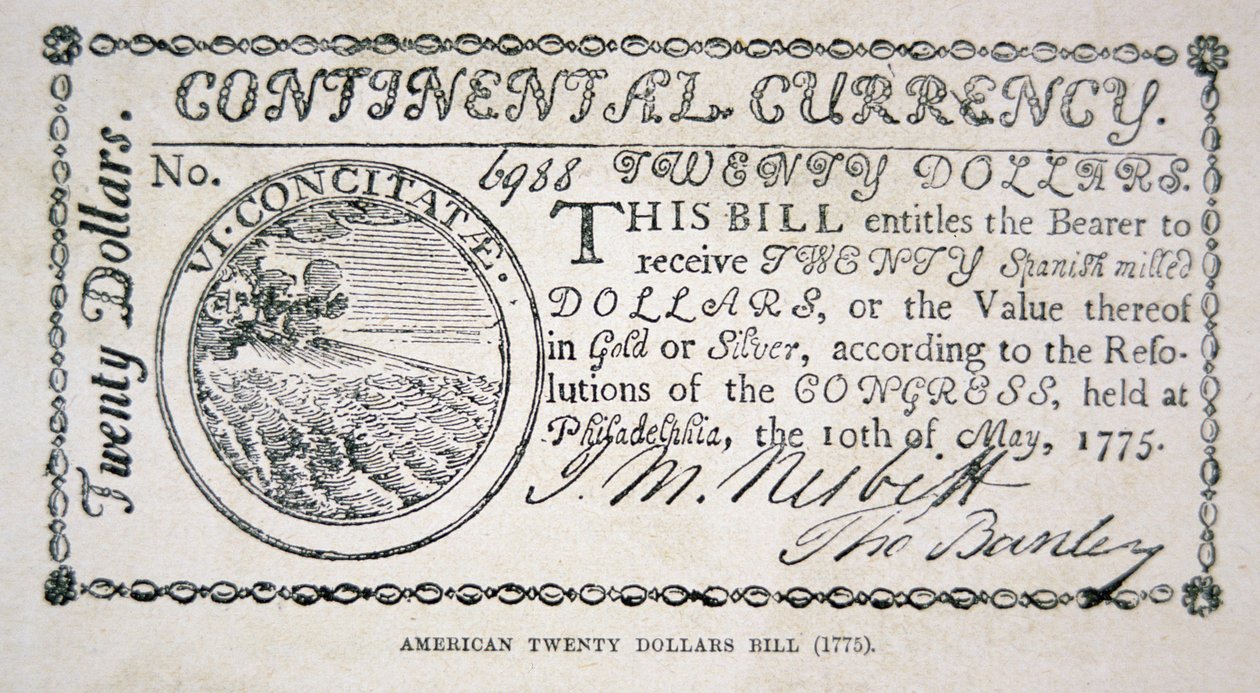 CONTINENTAL CURRENCY.
Twenty Dollars.
No. 6988 TWENTY DOLLARS.
VI·CONCITATÆ.
THIS BILL entitles the Bearer to
receive TWENTY Spanish milled
DOLLARS, or the Value thereof
in Gold or Silver, according to the Reſo-
lutions of the CONGRESS, held at
Philadelphia, the 10th of May, 1775.
J. M. Nesbitt
Tho Barclay
AMERICAN TWENTY DOLLARS BILL (1775).